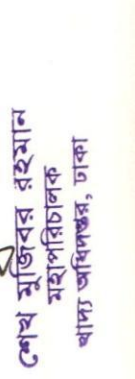 শেখ মুজিবর রহমান
মহাপরিচালক
খাদ্য অধিদপ্তর, ঢাকা